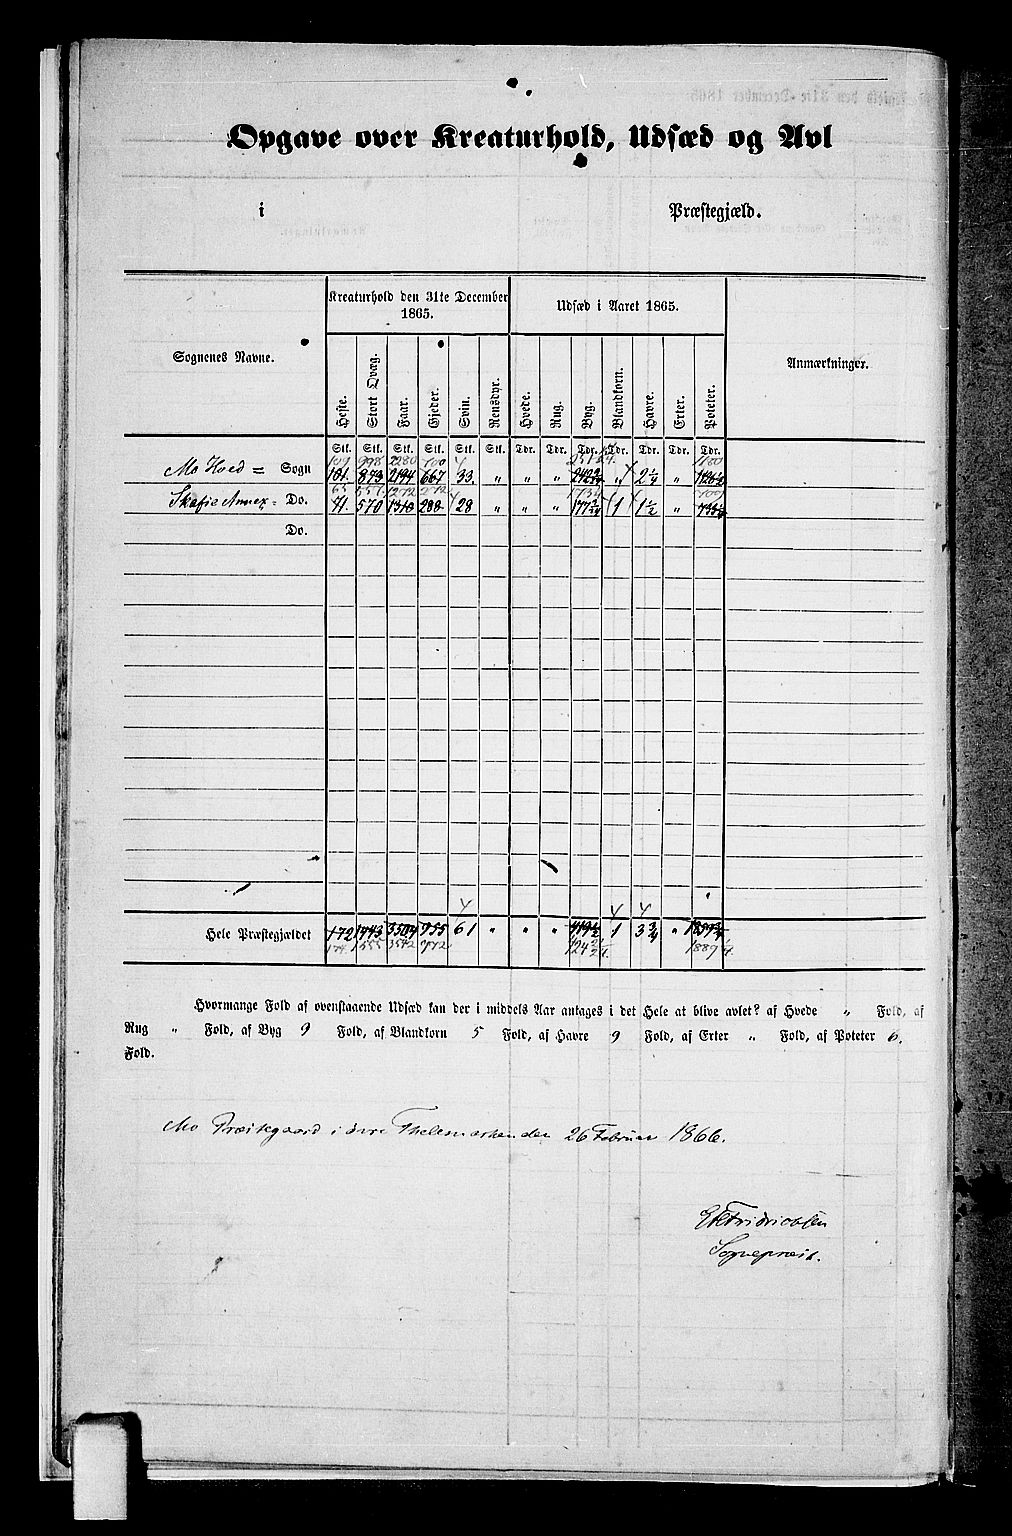 Opgave over Kreaturhold, Udsæd og Avl
i Præstegjæld.
Sognenes Navne.
Kreaturhold den 31te December 1865.
Udsæd i Aaret 1865.
Anmærkninger.
Heste. Stort Qvæg. Faar. Gjeder. Svin. Rensdyr. Hvede. Rug. Byg. Blandkorn. Havre. Erter. Poteter.
Stk. Stk. Stk. Stk. Stk. Stk. Tdr. Tdr. Tdr. Tdr. Tdr. Tdr. Tdr.
109 998 2280 700
Mo Hoved = Sogn 101. 873 2194 667 33. " " " " 2 1/4 "
65 557 1272 272
Skafse Annex = Do. 71. 570 1310 288 28 " " " 1 1 1/2 "
Do.
Hele Præstegjældet 172 1443 3504 955 61 " " " 1 3 3/4 "
174. 1555 3542 972
Hvormange Fold af ovenstaaende Udsæd kan der i middels Aar antages i det Hele at blive avlet? af Hvede " Fold, af
Rug " Fold, af Byg 9 Fold, af Blandkorn 5 Fold, af Havre 9 Fold, af Erter " Fold, af Poteter 6.
Fold.
Mo Præstegaard i övre Thelemarken den 26 Februar 1866.
Fridrichsen
Sognepræst.